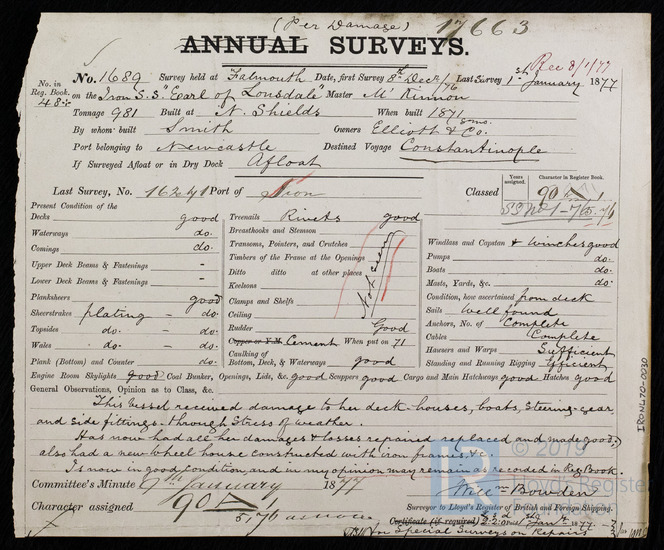 (Per Damage) 17663
ANNUAL SURVEYS.
Rec 8/1/77
No. in Reg. Book. 48
No. 1689 Survey held at Falmouth Date, first Survey 8th Decr /76 Last Survey 1st January 1877
on the Iron S.S. "Earl of Lonsdale" Master McKinnon
Tonnage 981 Built at N. Shields When built 1871
By whom built Smith Owners Elliott & Co.
Port belonging to Newcastle Destined Voyage Constantinople
If Surveyed Afloat or in Dry Dock Afloat
Last Survey, No. 16241 Port of Iron Classed Years assigned. Character in Register Book. 90 A 1
SS No 1-7/65.76
Present Condition of the
Decks good
Waterways do.
Comings do.
Upper Deck Beams & Fastenings -
Lower Deck Beams & Fastenings -
Planksheers good
Sheerstrakes plating - do.
Topsides do. - do.
Wales do. - do.
Plank (Bottom) and Counter do.
Treenails Rivets good
Breasthooks and Stemson
Transoms, Pointers, and Crutches
Timbers of the Frame at the Openings
Ditto ditto at other places
Keelsons
Clamps and Shelfs
Ceiling
Not seen
Rudder Good
Copper or Y.M. Cement When put on 71
Caulking of Bottom, Deck, & Waterways good
Windlass and Capstan & Winches good
Pumps do.
Boats do.
Masts, Yards, &c. do.
Condition, how ascertained from deck
Sails Well found
Anchors, No. of Complete
Cables Complete
Hawsers and Warps Sufficient
Standing and Running Rigging Efficient
Engine Room Skylights good Coal Bunker, Openings, Lids, &c. good Scuppers good Cargo and Main Hatchways good Hatches good
General Observations, Opinion as to Class, &c.
This vessel received damage to her deck-houses, boats, steering-gear
and side fittings through stress of weather.
Has now had all her damages & losses repaired replaced and made good,
also had a new wheel house constructed with iron frames, &c.
Is now in good condition, and in my opinion may remain as recorded in Reg. Book.
Committee's Minute 9th January 1877
Character assigned 90 A 1
5,76
Willm Bowden
Surveyor to Lloyd's Register of British and Foreign Shipping.
Certificate (if required)
Special Surveys on Repairs
© 2019
Lloyd's Register
IRON470-0030